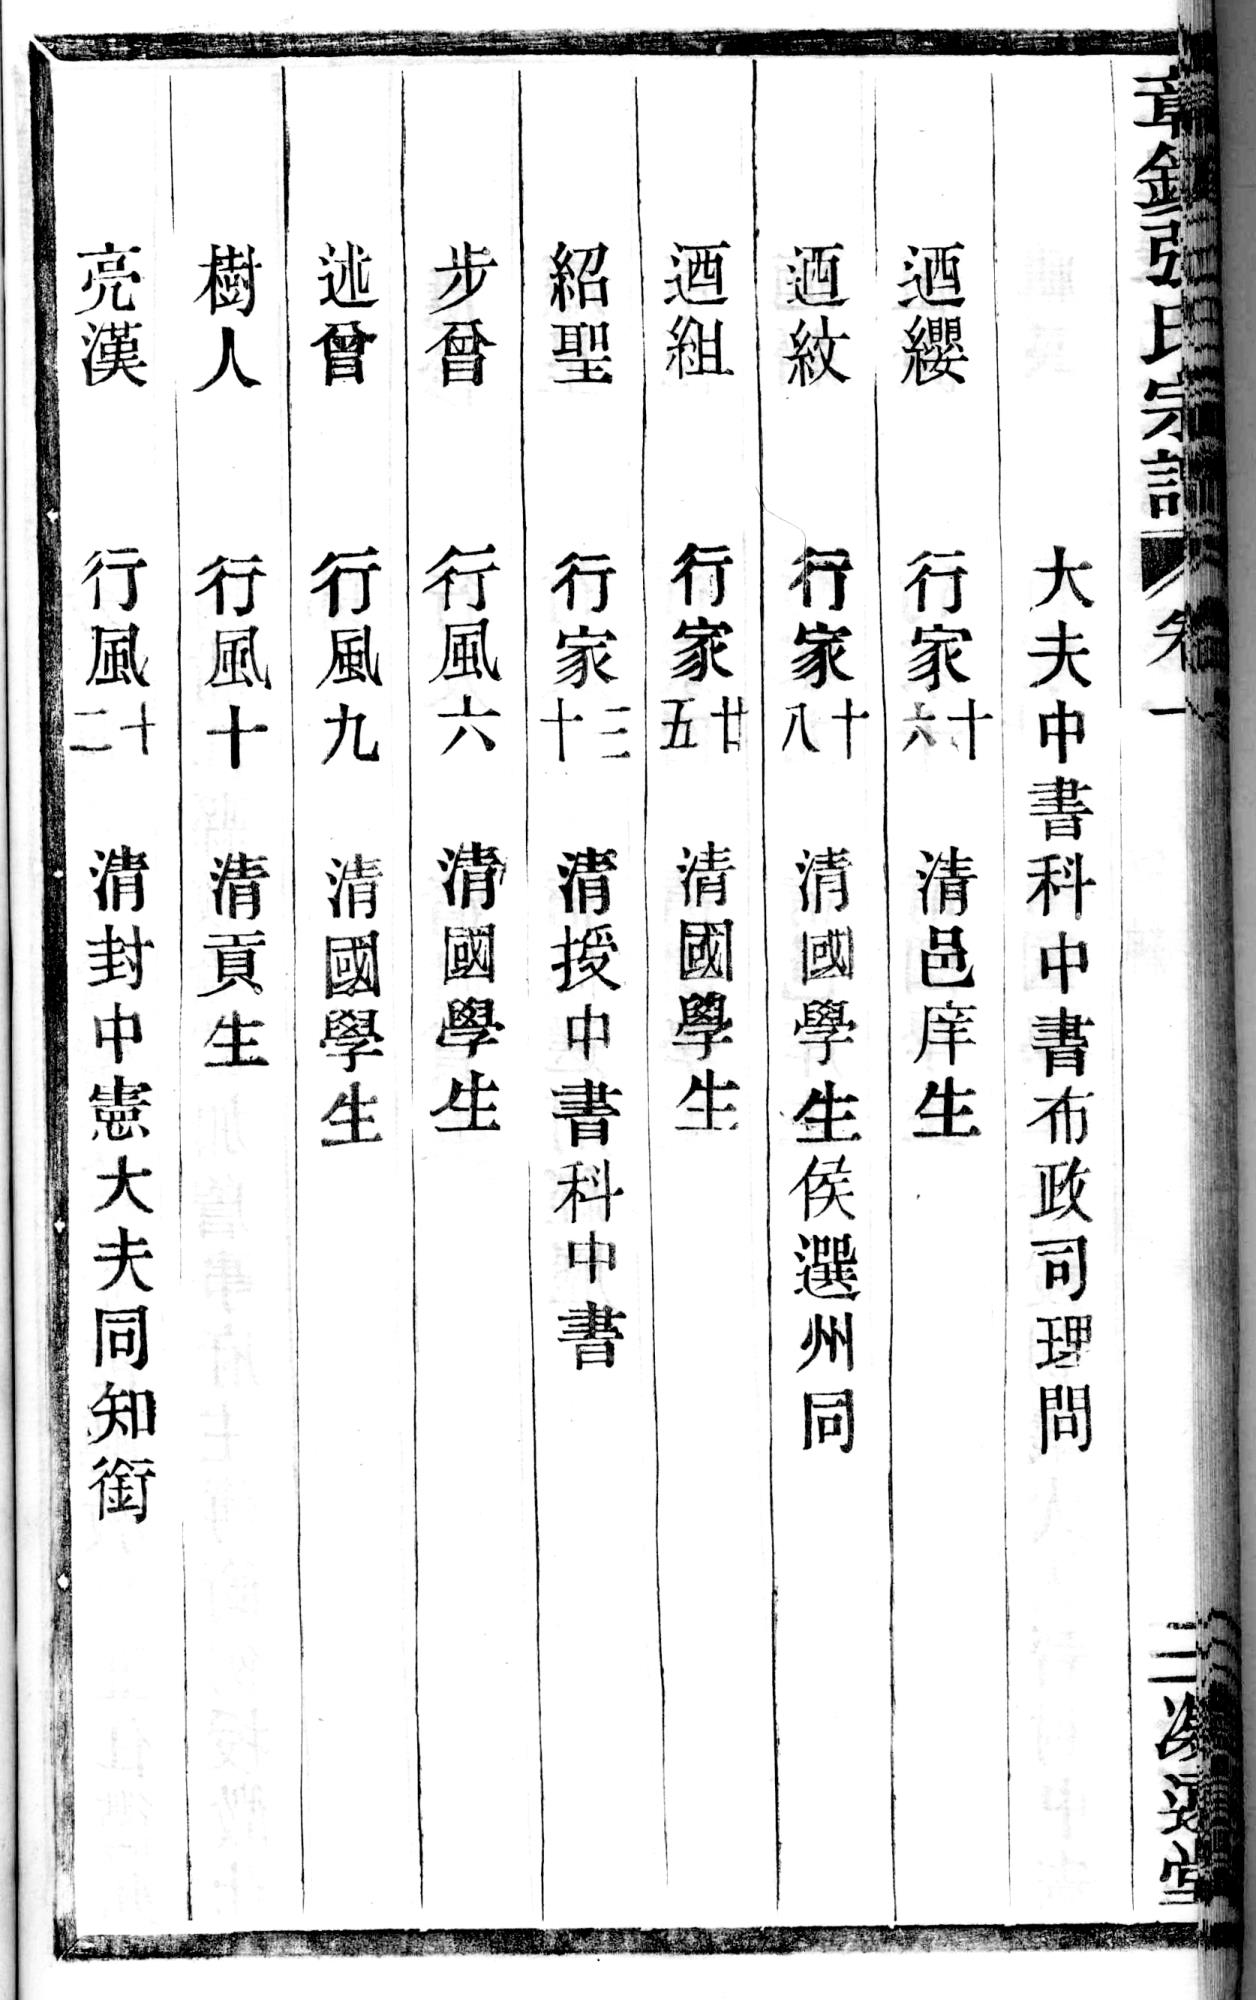 張氏宗譜 卷一
大夫中書科中書布政司理問
迺纓 行家十六 清邑庠生
迺紋 行家十八 清國學生侯選州同
迺組 行家廿五 清國學生
紹聖 行家三十 清授中書科中書
步曾 行風六 清國學生
述曾 行風九 清國學生
樹人 行風十 清貢生
亮漢 行風十二 清封中憲大夫同知銜